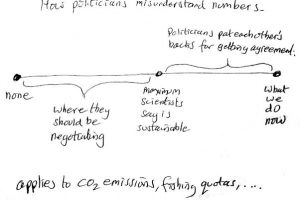 How politicians misunderstand numbers.
Politicians pat eachother's
backs for getting agreement.
none
where they
should be
negotiating
maximum
scientists
say is
sustainable
what
we
do
now
applies to CO2 emissions, fishing quotas, ....